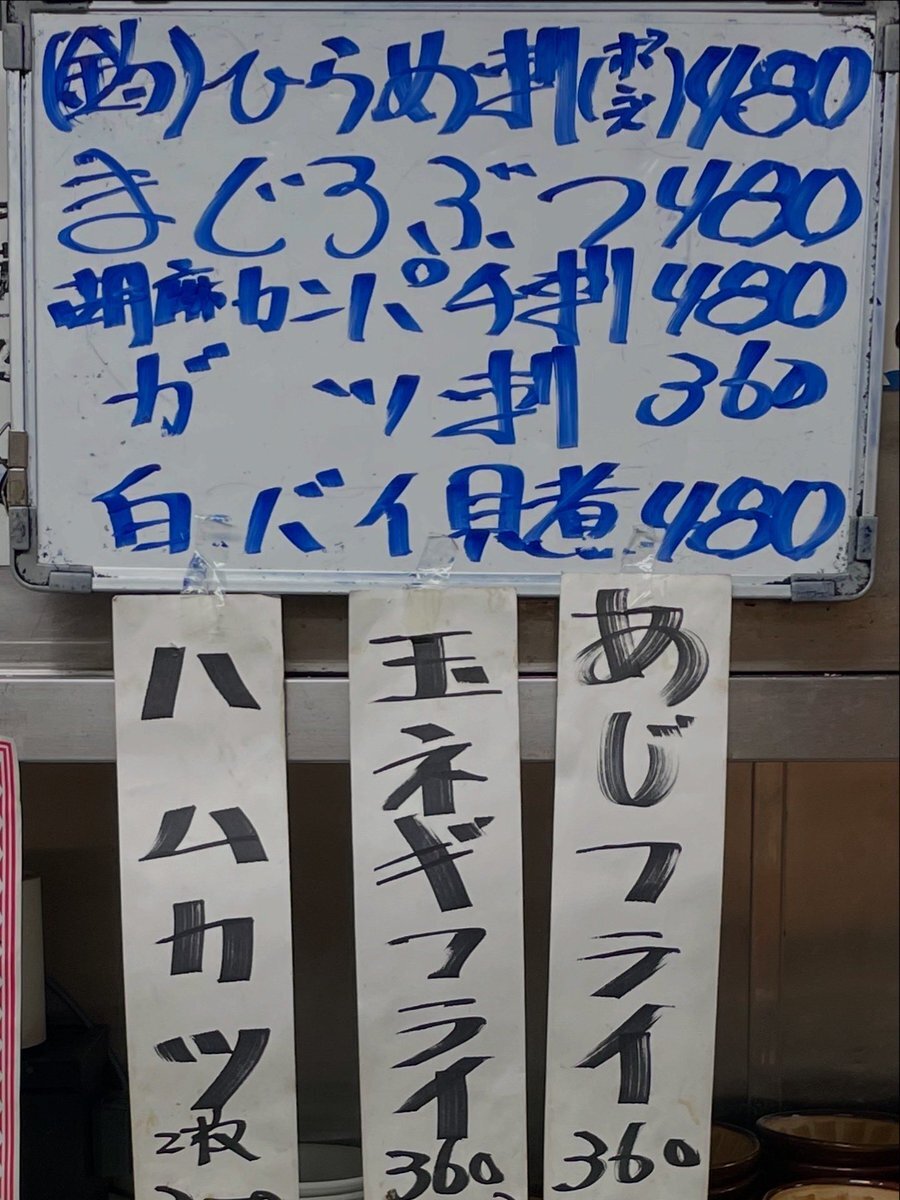 (釣)ひらめ刺(ポンズ)480
まぐろぶつ480
胡麻カンパチ刺480
ガツ刺 360
白バイ貝煮480
あじフライ 360
玉ネギフライ 360
ハムカツ 2枚